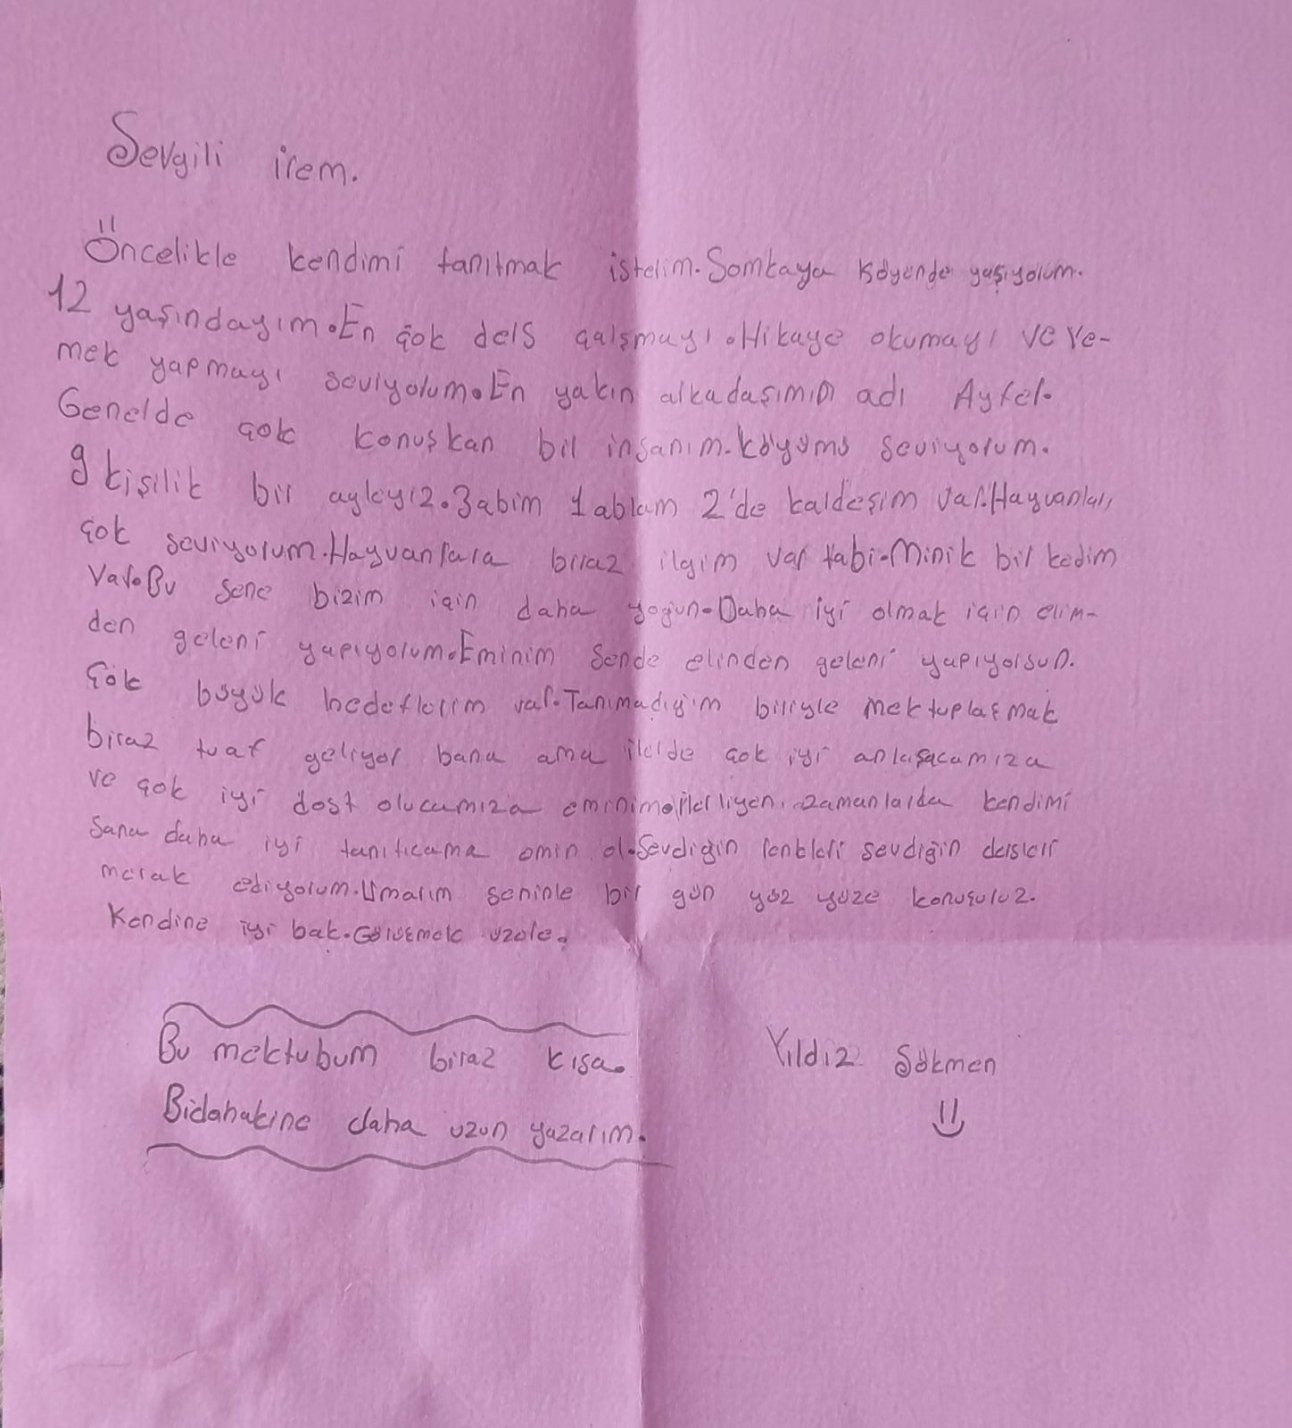 Sevgili irem.
Öncelikle kendimi tanıtmak isterim. Somkaya köyende yaşıyorum.
12 yaşındayım. En çok ders çalşmayı. Hikaye okumayı ve Ye-
mek yapmayı seviyorum. En yakın arkadaşımın adı Ayfer.
Genelde çok konuşkan bir insanım. köyümü seviyorum.
9 kişilik bir ayleyiz. 3 abim 1 ablam 2'de kardeşim var. Hayvanları
çok seviyorum. Hayvanlara biraz ilgim var tabi. Minik bir kedim
Var. Bu sene bizim için daha yoğun. Daha iyi olmak için elim-
den geleni yapıyorum. Eminim Sende elinden geleni yapıyorsun.
Çok büyük hedeflerim var. Tanımadığım biriyle mektuplaşmak
biraz tuaf geliyor bana ama ilerde çok iyi anlaşacamıza
ve çok iyi dost olucamıza eminim. İlerliyen zamanlarda kendimi
Sana daha iyi tanıtıcama emin ol. Sevdiğin renkleri sevdiğin dersleri
merak ediyorum. Umarım seninle bir gün yüz yüze konuşuruz.
Kendine iyi bak. Görüşmek üzere.
Bu mektubum biraz kısa.
Bidahakine daha uzun yazarım.
Yıldız Sökmen